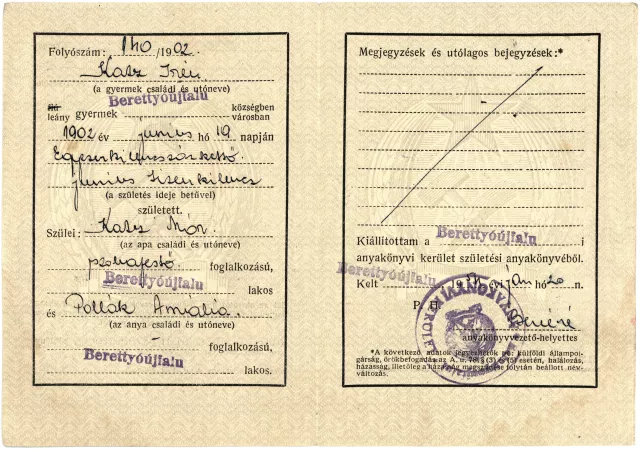 Folyószám: 140 /1902.
Katz Irén
(a gyermek családi és utóneve)
fiú Berettyóújfalu községben
leány gyermek városban
1902 év június hó 19 napján
Egyezerkilencszázkettő
június tizenkilenc
(a születés ideje betűvel)
született.
Szülei: Katz Mór
(az apa családi és utóneve)
szobafestő foglalkozású,
Berettyóújfalu lakos
és Pollák Amália
(az anya családi és utóneve)
- foglalkozású,
Berettyóújfalu lakos.
Megjegyzések és utólagos bejegyzések:*
Kiállítottam a Berettyóújfalu i
anyakönyvi kerület születési anyakönyvéből.
Berettyóújfalu
Kelt 19 évi hó 20 n.
P. H.
ANYAKÖNYVI KERÜLET
anyakönyvvezető-helyettes
*A következő adatok jegyezhetők be: külföldi állampol-
gárság, örökbefogadás az A. u. 78. § (3) (5) esetén, halálozás,
házasság, illetőleg a házasság megszűnése folytán beállott név-
változás.